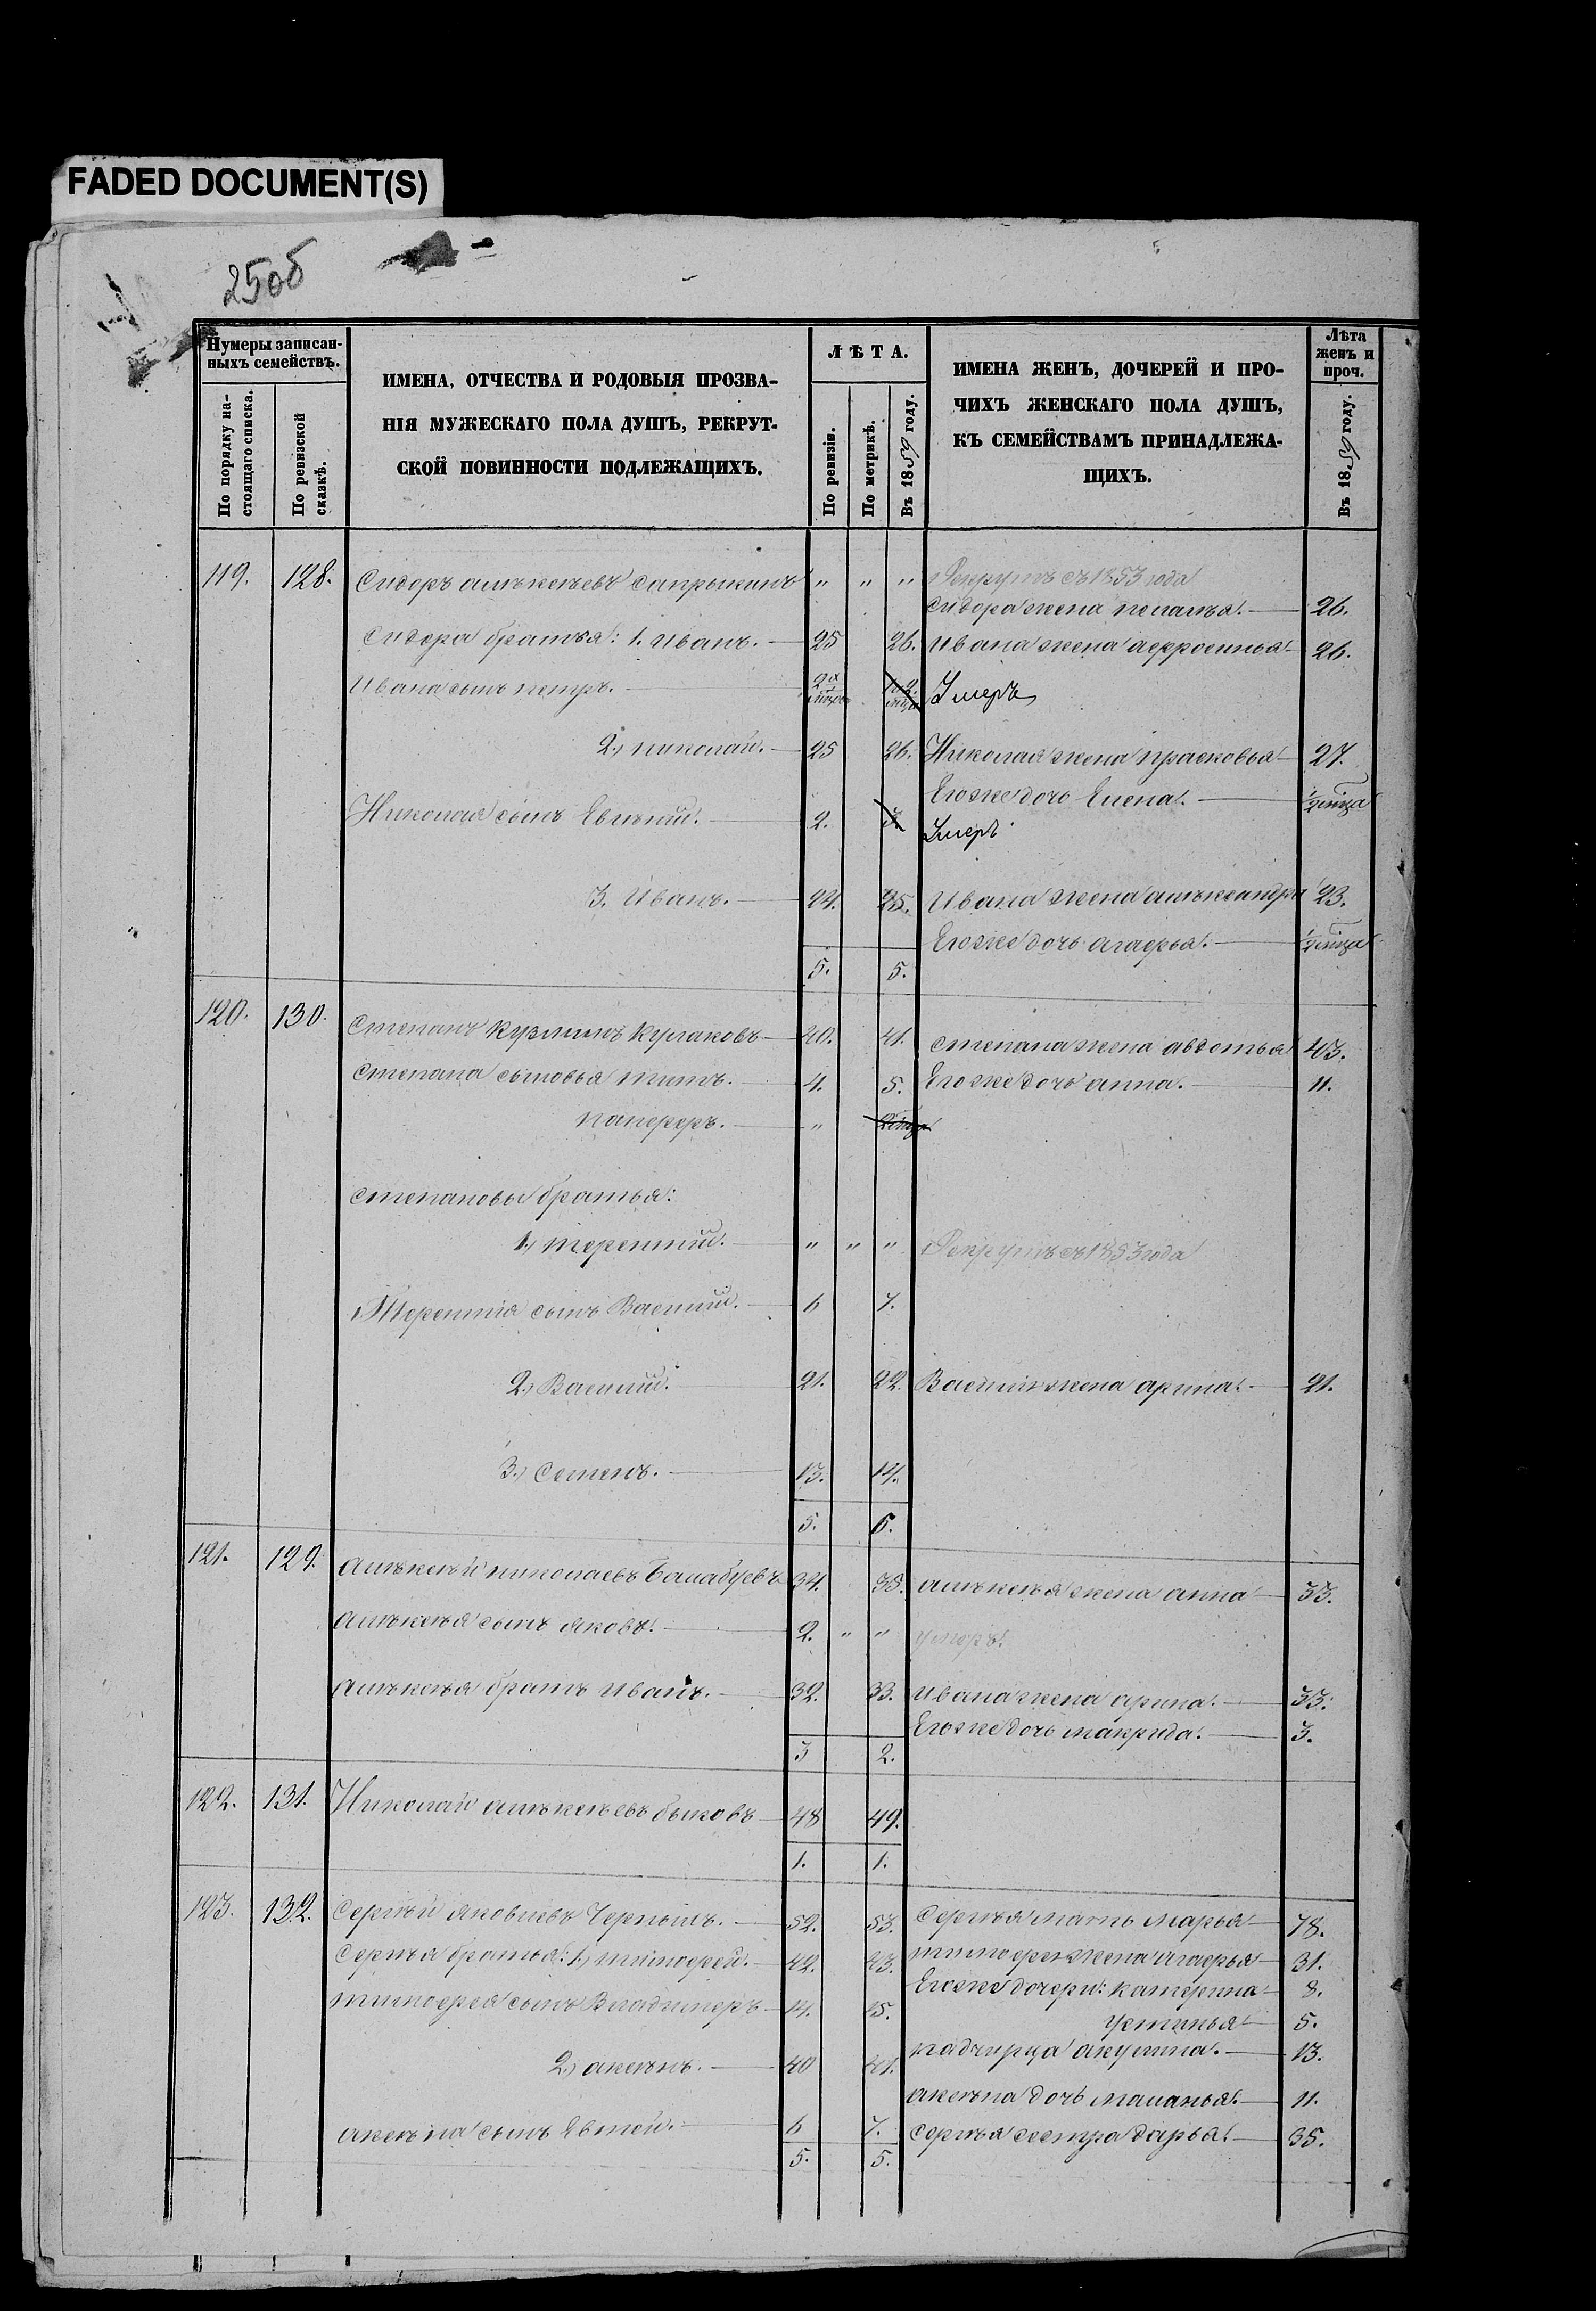 FADED DOCUMENT(S)
25об
Нумеры записан-
ныхъ семействъ.
По порядку на-
стоящаго списка.
По ревизской
сказкѣ.
ИМЕНА, ОТЧЕСТВА И РОДОВЫЯ ПРОЗВА-
НІЯ МУЖЕСКАГО ПОЛА ДУШЪ, РЕКРУТ-
СКОЙ ПОВИННОСТИ ПОДЛЕЖАЩИХЪ.
ЛѢТА.
По ревизіи.
По метрикѣ.
Въ 1859 году.
ИМЕНА ЖЕНЪ, ДОЧЕРЕЙ И ПРО-
ЧИХЪ ЖЕНСКАГО ПОЛА ДУШЪ,
КЪ СЕМЕЙСТВАМЪ ПРИНАДЛЕЖА-
ЩИХЪ.
Лѣта
женъ и
проч.
Въ 1859 году.
119. 128. Сидоръ алѣксѣевъ сапрыкинъ " " " Рекрутъ съ 1853 года
сидора жена пелагѣя. 26.
Сидора братья: 1. Иванъ. 25 26. Ивана жена афросинья 26.
Ивана сынъ петръ. Умеръ
2.) николай. 25 26. Николая жена прасковья 27.
Егоже дочь Елена.
Николая сынъ 2. 3. Умеръ
3. Иванъ. 24. 25. Ивана жена алѣксандра 23.
Егоже дочь агафья.
5. 5.
120. 130. Степанъ Кузминъ Кулаковъ 40. 41. степана жена авдотья 43.
Степана сыновья титъ. 4. 5. Егоже дочь анна. 11.
"
степановы братья:
1.) терентий. " " " Рекрутъ съ 1853 года
Терентия сынъ Василий. 6 7.
2.) Василий. 21. 22. Василия жена арина. 21.
3.) Семенъ. 13. 14.
5. 5.
121. 129. Алѣксѣй николаевъ Балабуевъ 34. 35. алѣксѣя жена анна 33.
Алѣксѣя сынъ яковъ. 2. " " умеръ.
Алѣксѣя братъ Иванъ. 32. 33. Ивана жена арина. 33.
Егоже дочь макрида. 3.
3 2.
122. 131. Николай алѣксѣевъ быковъ 48 49.
1. 1.
123. 132. Сергѣй яковлевъ Чернышъ. 52. 53. Сергѣя мать марья 78.
Сергѣя братья: 1.) тимофей. 42. 43. тимофея жена агафья 31.
Егоже дочери: катерина 8.
тимофея сынъ Владимеръ 14. 15. устинья 5.
падчирца акулина. 13.
2.) аксѣнъ. 40 41.
аксѣна дочь маланья. 11.
аксѣна сынъ Евтей. 6 7. Сергѣя сестра дарья. 35.
5. 5.